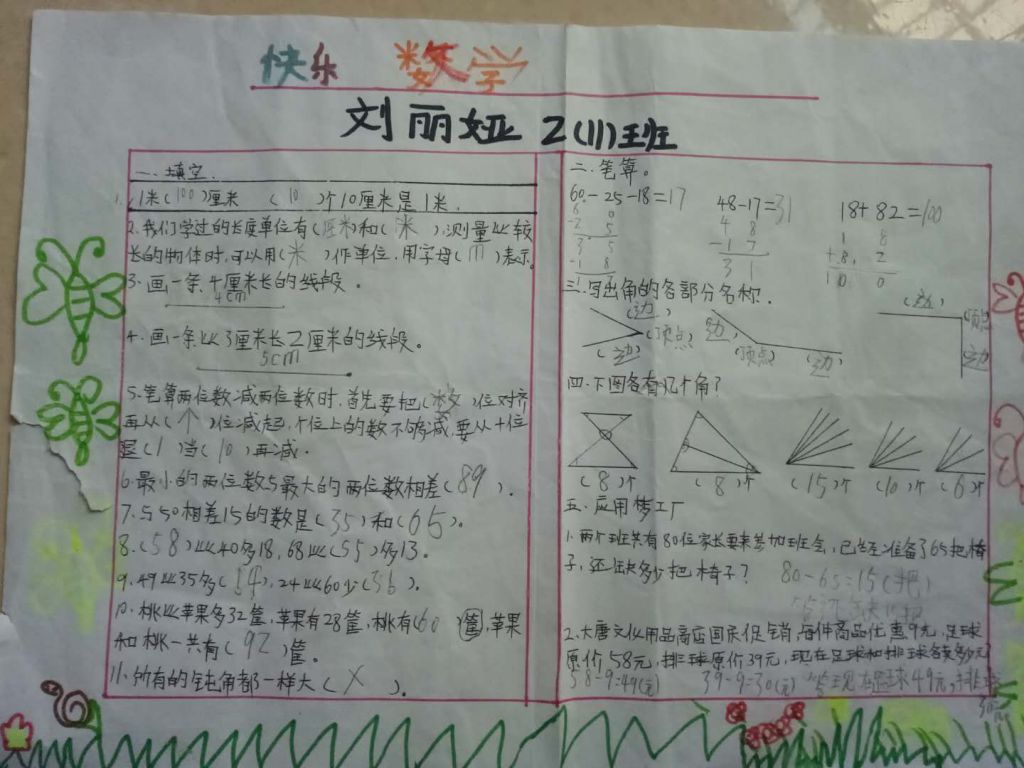 快乐 数学
刘丽娅 2(11)班
一、填空.
1. 1米(100)厘米 (10)个10厘米是1米.
2.我们学过的长度单位有(厘米)和(米),测量比较
长的物体时,可以用(米)作单位,用字母(m)表示.
3.画一条4厘米长的线段.
4cm
4.画一条比3厘米长2厘米的线段.
5cm
5.笔算两位数减两位数时,首先要把(数)位对齐
再从(个)位减起,个位上的数不够减,要从十位
退(1)当(10)再减.
6.最小的两位数与最大的两位数相差(89).
7.与50相差15的数是(35)和(65).
8.(58)比40多18,68比(55)多13.
9.49比35多(14),24比60少(36).
10.桃比苹果多32筐,苹果有28筐,桃有(60)筐,苹果
和桃一共有(92)筐.
11.所有的钝角都一样大(X).
二.笔算。
60-25-18=17 48-17=31 18+82=100
6 0 4 8 1 8
-2 5 -1 7 +8 2
3 5 3 1 1 0 0
-1 8
三.写出角的各部分名称.
(边) (顶点) (边)
(边) (顶点) (边)
(边) (顶点) (边)
四.下图各有几个角?
(8)个 (8)个 (15)个 (10)个 (6)个
五.应用梦工厂
1.两个班共有80位家长要来参加班会,已经准备了65把椅
子,还缺多少把椅子? 80-65=15(把)
2.大唐文化用品商店国庆促销,每件商品优惠9元,足球
原价58元,排球原价39元,现在足球和排球各卖多少元
58-9=49(元) 39-9=30(元) 答:现在足球49元,排球
30元